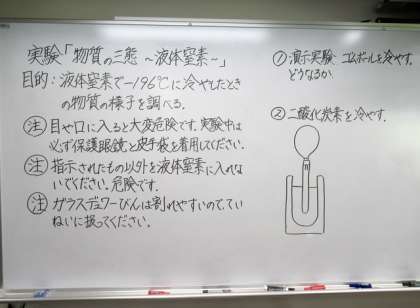 実験「物質の三態 ～液体窒素～」
目的：液体窒素で-196℃に冷やしたとき
の物質の様子を調べる。
注 目や口に入ると大変危険です。実験中は
必ず保護眼鏡と皮手袋を着用してください。
注 指示されたもの以外を液体窒素に入れな
いでください。危険です。
注 ガラスデュワーびんは割れやすいので、てい
ねいに扱ってください。
① 演示実験：ゴムボールを冷やす。
どうなるか
② 二酸化炭素を冷やす。